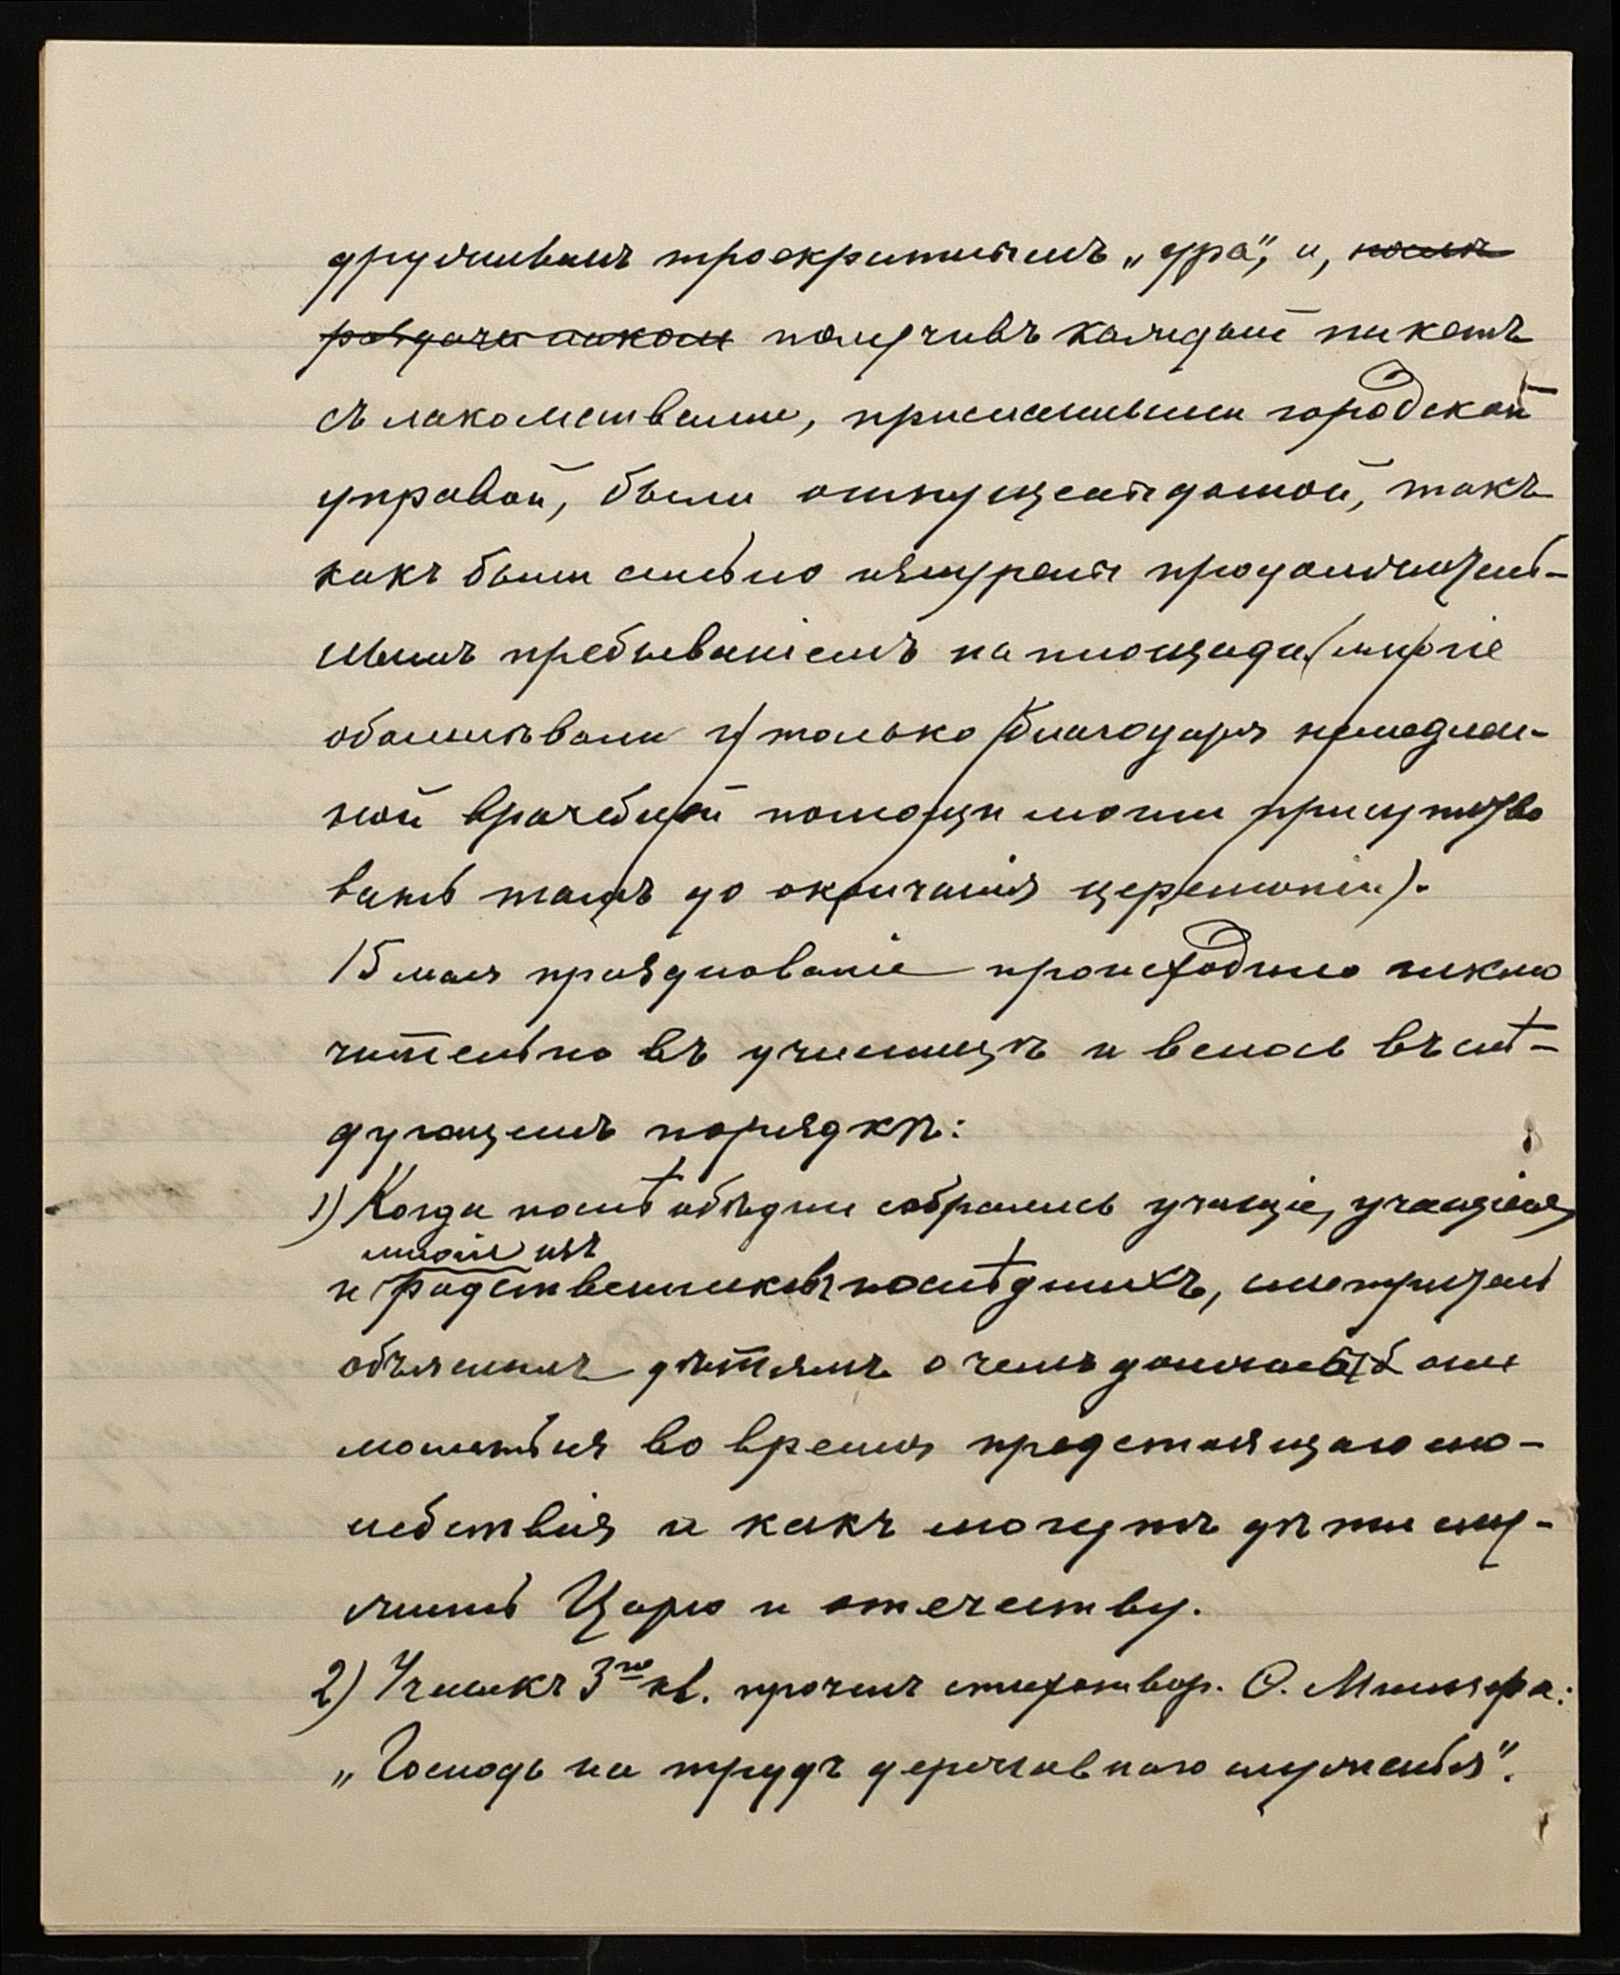 дружнымъ троекратнымъ „ура“, и, послѣ
раздачи лаком получивъ каждый пакетъ
съ лакомствами, присланными городской
управой, были отпущены домой, такъ
какъ были сильно изнурены продолжитель-
нымъ пребываніемъ на площади (многіе
обомлѣвали и только благодаря немедлен-
ной врачебной помощи могли присутство
вать тамъ до окончанія церемоніи).
15 мая празднованіе происходило исклю
чительно въ училищѣ и велось въ слѣ-
дующемъ порядкѣ:
1) Когда послѣ обѣдни собрались учащіе, учащіеся
многіе изъ
и родственниковъ послѣднихъ, смотритель
объяснилъ дѣтямъ о чемъ должны они
молиться во время предстоящаго мо-
лебствія и какъ могутъ дѣти слу-
жить Царю и отечеству.
2) Ученикъ 3го кл. прочелъ стихотвор. О. Миллера:
„Господь на трудъ державнаго служенья“.